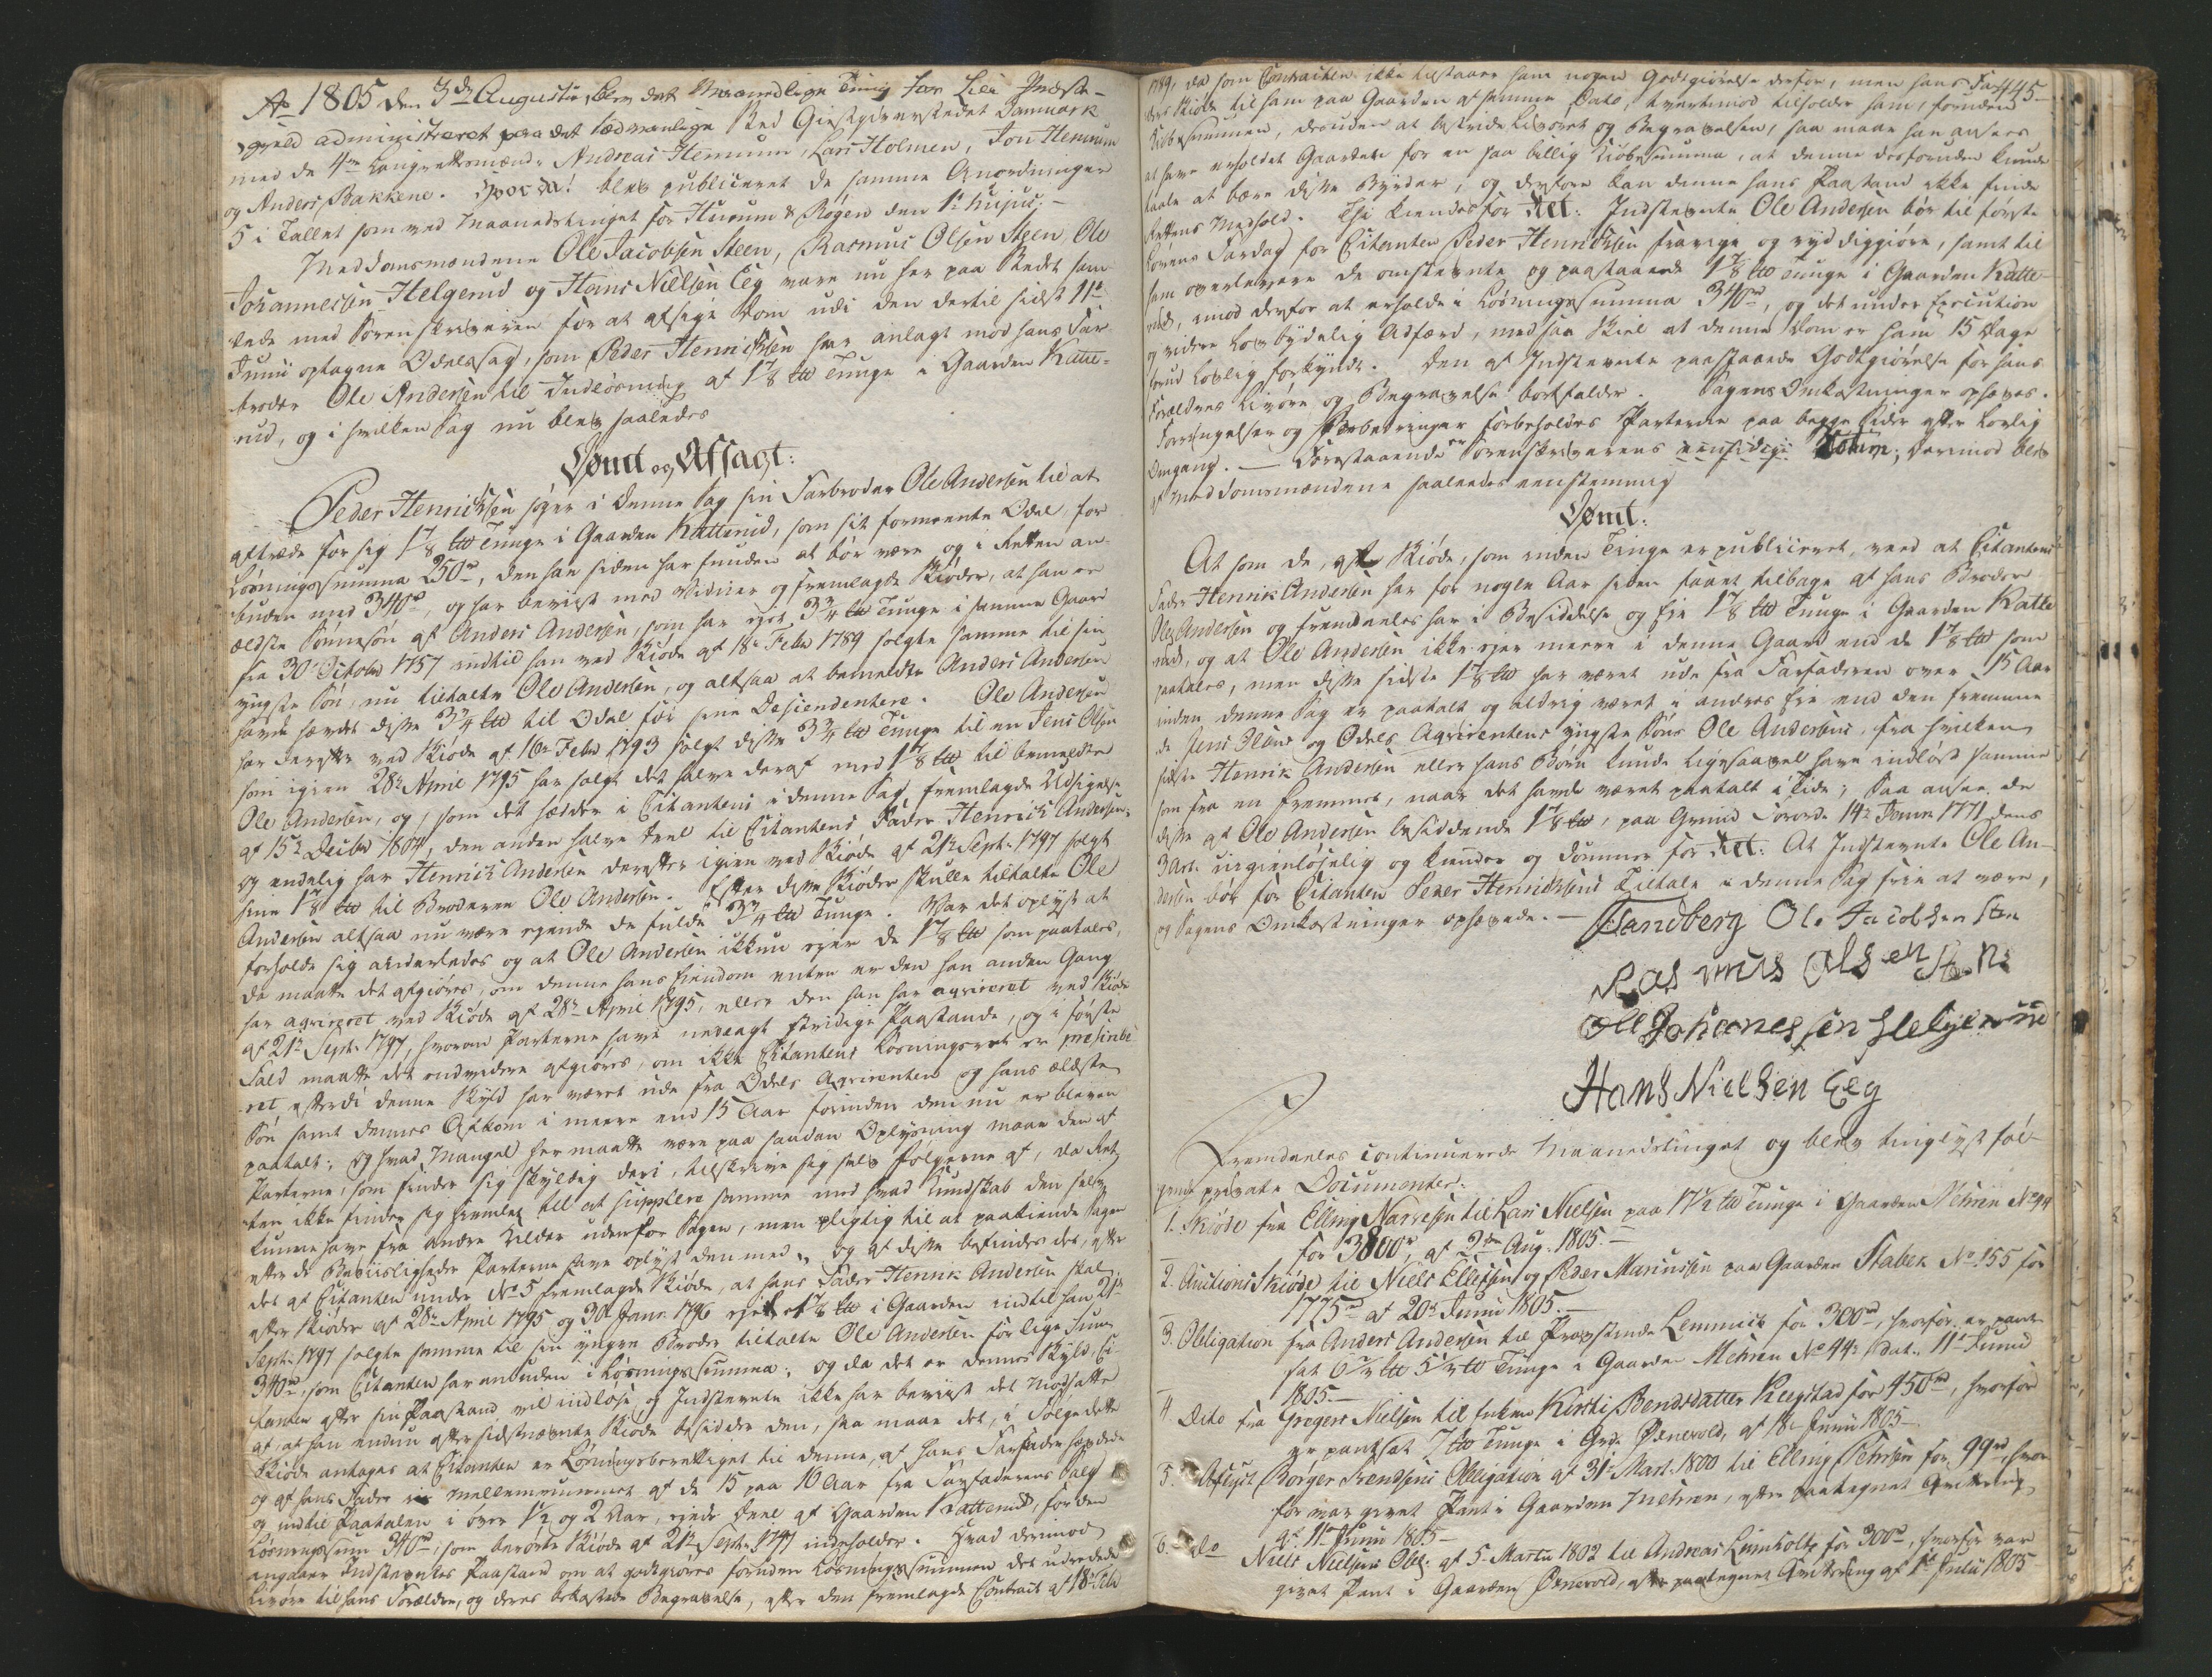 Ao 1805 den 3de Augustii blev det Maanedlige Ting for Lier Præste-
gield administreret paa det sædvanlige Sted Giestgiverstedet Danmark
med de 4re Laugrettesmænd: Andreas Hennum, Lars Holmen, Jon Hennum
og Anders Bakkene. Hvorda! blev publiceret de samme Anordninger
5 i Tallet som ved Maanedstinget for Hurum & Røgen den 1e hujus: -
Meddomsmændene Ole Jacobsen Steen, Rasmus Olsen Steen, Ole
Johannessen Helgerud og Hans Nielsen Eeg vare nu her paa Stedet sam
lede med Sorenskriveren for at afsige Dom udi den dertil sidst 11te
Junii optagne Odelssag, som Peder Henrichsen har anlagt mod hans Far
broder Ole Andersen til Indløsning af 1 7/8 Tunge i Gaarden Katte-
rud, og i hvilken Sag nu blev saaledes
Dømt og Afsagt:
Peder Henrichsen søger i denne Sag sin Farbroder Ole Andersen til at
aftræde for sig 1 7/8 Tunge i Gaarden Katterud, som sit formeente Odel for
Løsningssumma 250rd, den han siden har funden at bør være og i Retten an-
buden med 340rd, og har beviist med Vidner og fremlagde Skiøder, at han er
ældste Sønnesøn af Anders Andersen, som har ejet 3 3/4 Tunge i samme Gaard
fra 30te October 1757 indtil han ved Skiøde af 18e Febr 1789 solgte samme til sin
yngste Søn, nu tiltalte Ole Andersen, og altsaa at bemeldte Anders Andersen
havde hævdet disse 3 3/4 til Odel for sine Descendentere. Ole Andersen
har derefter ved Skiøde af 16de Febr 1793 solgt disse 3 3/4 Tunge til en Jens Olsen
som igien 28de April 1795 har solgt det halve deraf med 1 7/8 til bemeldte
Ole Andersen, og, som det hedder i Citantens i denne Sag fremlagde Udsigelse
af 15de Decbr 1804, den anden halve Deel til Citantens Fader Henrich Andersen,
og endelig har Henrich Andersen derefter igien ved Skiøde af 21de Septr 1797 solgt
sine 1 7/8 til Broderen Ole Andersen. Efter disse Skiøder skulle tiltalte Ole
Andersen altsaa nu være ejende de fulde 3 3/4 Tunge. Var det oplyst at
forholde sig anderledes og at Ole Andersen ikkun ejer de 1 7/8 som paatales,
da maatte det afgiøres, om denne hans Eiendom enten er den han anden Gang
har aqvireret ved Skiøde af 28de April 1795, eller den han har aqvireret ved Skiøde
af 21de Septr 1797, hvorom Parterne have nedlagt stridige Paastande, og i første
Fald maatte det endvidere afgiøres, om ikke Citantens Løsningsret er præscribe
ret, efterdi denne Skyld har været ude fra Odels Aqvirenten og hans ældste
Søn samt dennes Afkom i meere end 15 Aar forinden den nu er bleven
paatalt; og hvad Mangel her maatte være paa saadan Oplysning maae den af
Parterne, som finder sig skyldig deri, tilskrive sig selv Følgerne af, da Ret
ten ikke finder sig til at supplere samme med hvad Kundskab den selv
kunne have fra andre Kilder udenfor Sagen, men pligtig til at paakiende Sagen
efter de Beviisligheder Parterne have oplyst den med. og af disse befindes det, efter
det af Citanten under No 5 fremlagde Skiøde, at hans Fader Henrik Andersen skal
efter Skiøder af 28de April 1795 og 30te Janr 1796 ejet 1 7/8 i Gaarden indtil han 21de
Septr 1797 solgte samme til sin yngre Broder tiltalte Ole Andersen for lige Sum
340rd, som Citanten har anbuden i Løsningssumma; og da det er dennes Skyld, Ci-
tanten efter sin Paastand vil indløse, og Indstevnte ikke har beviist det Modsatte
af, at han endnu efter sidstnævnte Skiøde besidder den, saa maae det, i Følge dette
Skiøde antages at Citanten er Løsningsberettiget til denne, af hans Farfader hævdede
og af hans Fader i Mellemrummet af de 15 paa 16 Aar fra Farfaderens Salg
og indtil Paatalen i over 1 1/2 og 2 Aar, ejede Deel af Gaarden Katterud, for den
Løsningssum 340rd, som berørte Skiøde af 21de Septr 1797 indeholder. Hvad derimod
angaaer Indstevntes Paastand om at godtgiøres foruden Løsningssummen det udredede
Livøre til hans Forældre, og deres bekostede Begravelse, efter den fremlagde Contract af 18de Febr
445
1789, da som Contracten ikke tilstaaer ham nogen Godtgiørelse derfor, men hans Fa-
ders Skiøde til ham paa Gaarden af samme Dato, tvertimod tilholder ham, foruden
Kiøbesummen, desuden at bestride Livøret og Begravelsen, saa maae han ansees
at have erholdet Gaarden for en saa billig Kiøbesumma, at denne desforuden kunde
taale at bære disse Byrder, og derfore kan denne hans Paastand ikke finde
Rettens Medhold. Thi kiendes for Ret: Indstevnte Ole Andersen bør til første
Lovens Fardag for Citanten Peder Henrichsen fravige og ryddiggiøre, samt til
ham overlevere de omstevnte og paastaaede 1 7/8 Tunge i Gaarden Katte-
rud, imod derfor at erholde i Løsningssumma 340rd, og det under Execution
og videre Lovbydelig Adfærd, med saa Skiel at denne Dom er ham 15 Dage
forud lovlig forkyndt. Den af Indstevnte paastaaede Godtgiørelse for hans
Forældres Livøre og Begravelse bortfalder. Sagens Omkostninger ophæves.
Forringelser og Forbedringer forbeholdes Parterne paa begge Sider efter Lovlig
Omgang. — Forestaaende er Sorenskriverens eensidige Votum; derimod blev
af Meddomsmændene saaledes eenstemmig
Dømt:
At som de, af Skiøde, som inden Tinge er publiceret, veed at Citantens
Fader Henrik Andersen har for nogle Aar siden faaet tilbage af hans Broder
Ole Andersen og fremdeeles har i Besiddelse og Eie 1 7/8 Tunge i Gaarden Katte
rud, og at Ole Andersen ikke ejer meere i denne Gaard end de 1 7/8 som
paatales, men disse sidste 1 7/8 har været ude fra Farfaderen over 15 Aar
inden denne Sag er paatalt og aldrig været i andres Eie end den fremmede
Jens Olsens og Odels Aqvirentens yngste Søns Ole Andersens, fra hvilken
sidste Henrik Andersen eller hans Børn kunde ligesaavel have indløst samme
som fra en fremmed, naar det havde været paatalt i Tide; Saa ansee de
disse af Ole Andersen besiddende 1 7/8, paa Grund Forordn 14de Janr 1771 dens
3 Art. uigienløselig og kiender og dømmer for Ret: At Indstevnte Ole An-
dersen bør for Citanten Peder Henrichsens Tiltale i denne Sag frie at være,
og Sagens Omkostninger ophævede. —
Sandberg Ole Jacobsen Sten
Rasmus Olsen Sten
Ole Johanesen Helgerud
Hans Nielsen Eeg
Fremdeeles continuerede Maanedstinget og blev tinglyst føl-
gende private Documenter:
1. Skiøde fra Elling Narvesen til Lars Nielsen paa 17 1/2 Tunge i Gaarden Mehren No 44
for 3800rd, af 2den Aug. 1805. —
2. Auctions Skiøde til Niels Ellefsen og Peder Mariussen paa Gaarden Stabek No 155 for
1775rd af 20de Junii 1805. —
3. Obligation fra Anders Andersen til Provstinde Lemmich for 300rd, hvorfor er pant-
sat Tunge i Gaarden Mehren No 44: Dat. 11te Junii
1805. —
4 Dito fra Gregers Nielsen til Enken Kirsti Bendsdatter Kiegstad for 450rd, hvorfor
er pantsat 7 Tunge i Grd: Øenevold, af 18de Junii 1805 —
5. Aflyst Børger Svendsens Obligation af 31te Mart. 1800 til Elling Pehrsen for 99rd hvor
for var givet Pant i Gaarden Mehren, efter paategnet Qvittering
af 11te Junii 1805 —
6. do Niels Nielsens Obl: af 5. Martii 1802 til Andreas Lumholtz for 300rd, hvorfor var
givet Pant i Gaarden Øenevold, efter paategnet Qvittering af 1te Julii 1805